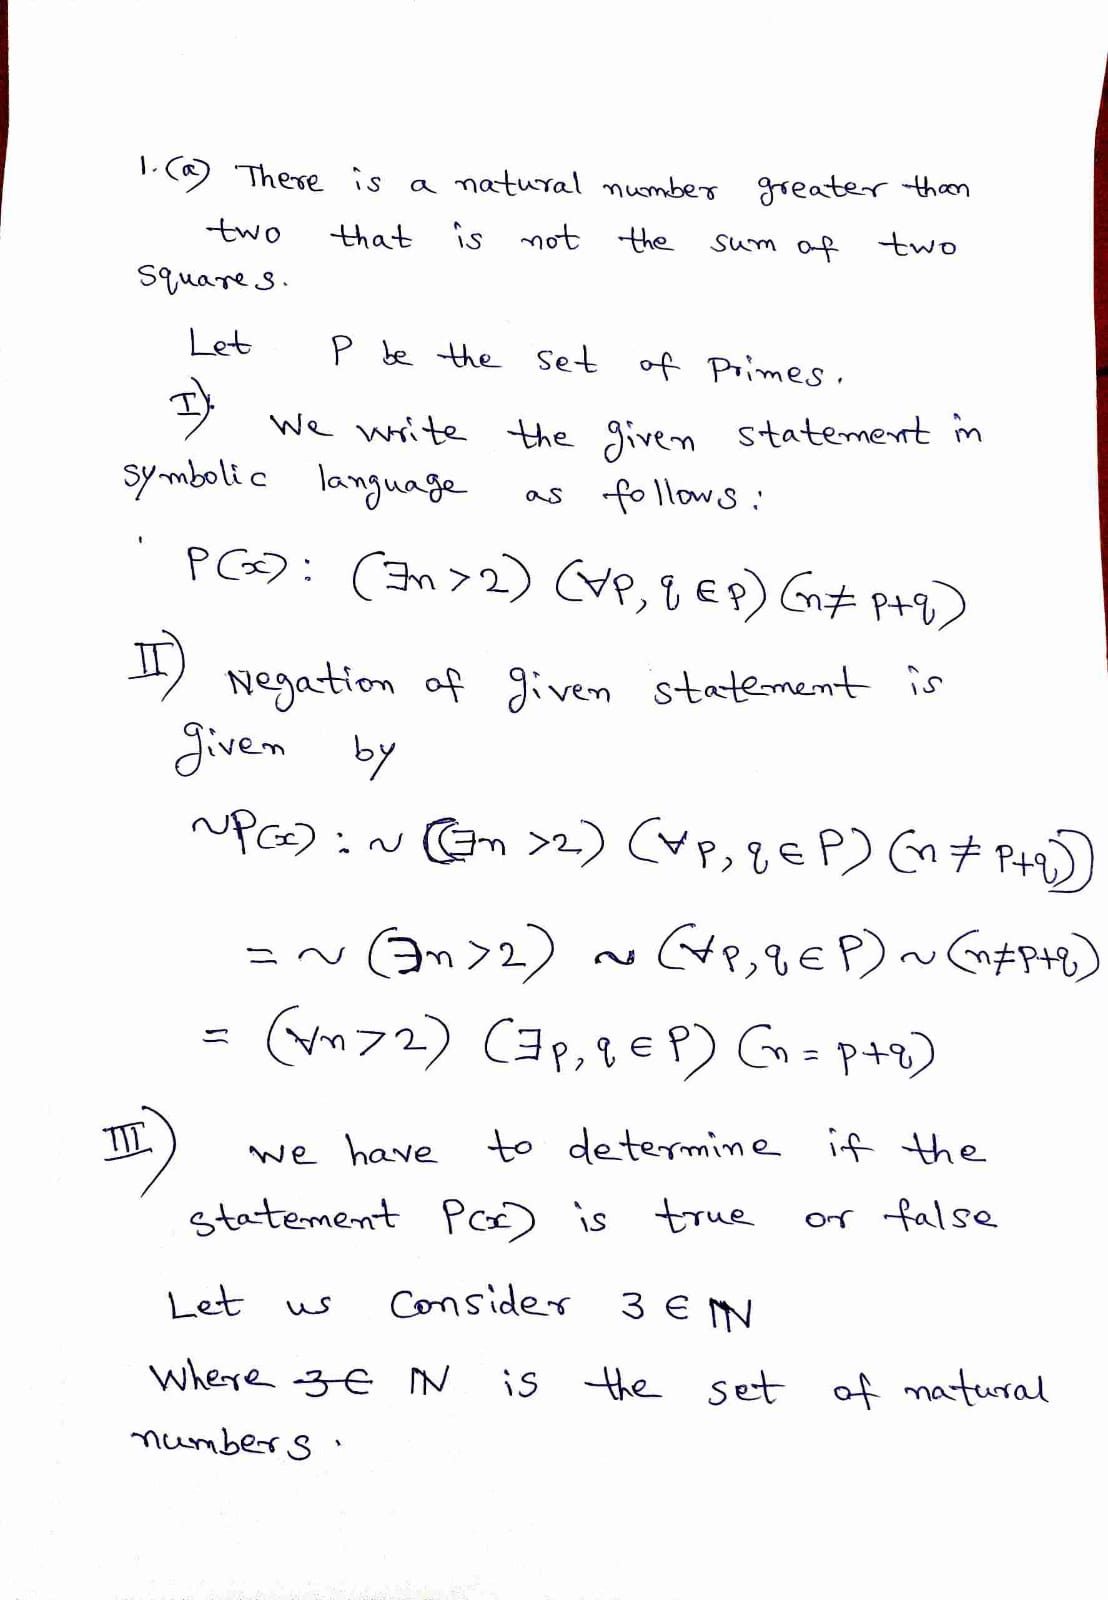 1. (a) There is a natural number greater than
two that is not the sum of two
squares.
Let P be the set of Primes.
I) We write the given statement in
symbolic language as follows:
P(x): (∃n>2) (∀P, q ∈ P) (n≠ P+q)
II) Negation of given statement is
given by
~P(x): ~ ((∃n >2) (∀P, q ∈ P) (n ≠ P+q))
= ~ (∃n>2) ~ (∀P, q ∈ P) ~ (n≠P+q)
= (∀n>2) (∃p, q ∈ P) (n = p+q)
III) We have to determine if the
statement P(x) is true or false
Let us Consider 3 ∈ ℕ
Where 3∈ ℕ is the set of natural
numbers.